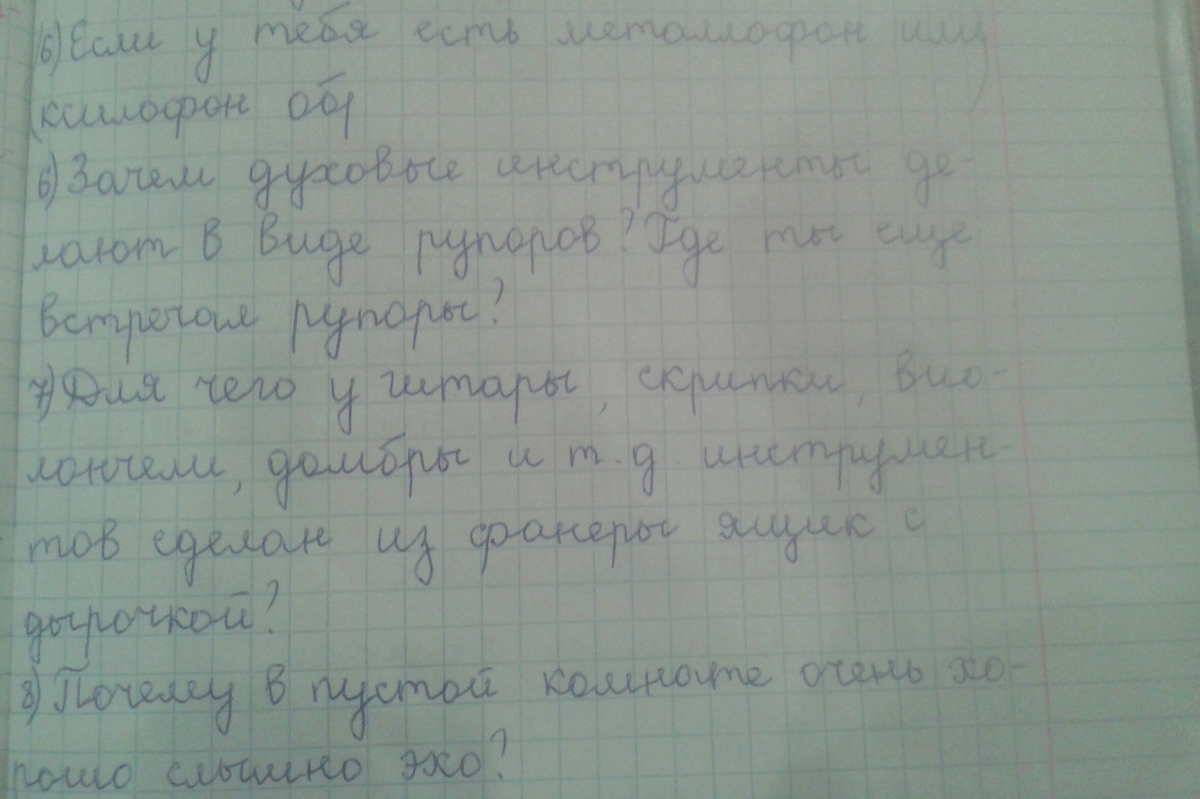 6) Если у тебя есть металлофон или
(ксилофон обр
6) Зачем духовые инструменты де-
лают в виде рупоров? Где ты еще
встречал рупоры?
7) Для чего у гитары, скрипки, вио-
лончели, домбры и т.д. инструмен-
тов сделан из фанеры ящик с
дырочкой?
8) Почему в пустой комнате очень хо-
рошо слышно эхо?